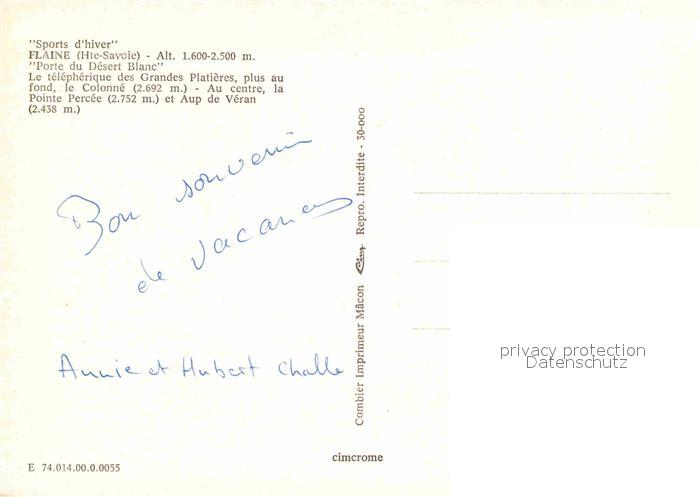 "Sports d'hiver"
FLAINE (Hte-Savoie) - Alt. 1.600-2.500 m.
"Porte du Désert Blanc"
Le téléphérique des Grandes Platières, plus au
fond, le Colonné (2.692 m.) - Au centre, la
Pointe Percée (2.752 m.) et Aup de Véran
(2.438 m.)
Bon souvenir
de vacances
Annie et Hubert Challe
E 74.014.00.0.0055
Combier Imprimeur Mâcon Cim Repro. Interdite - 30-000
cimcrome
privacy protection
Datenschutz